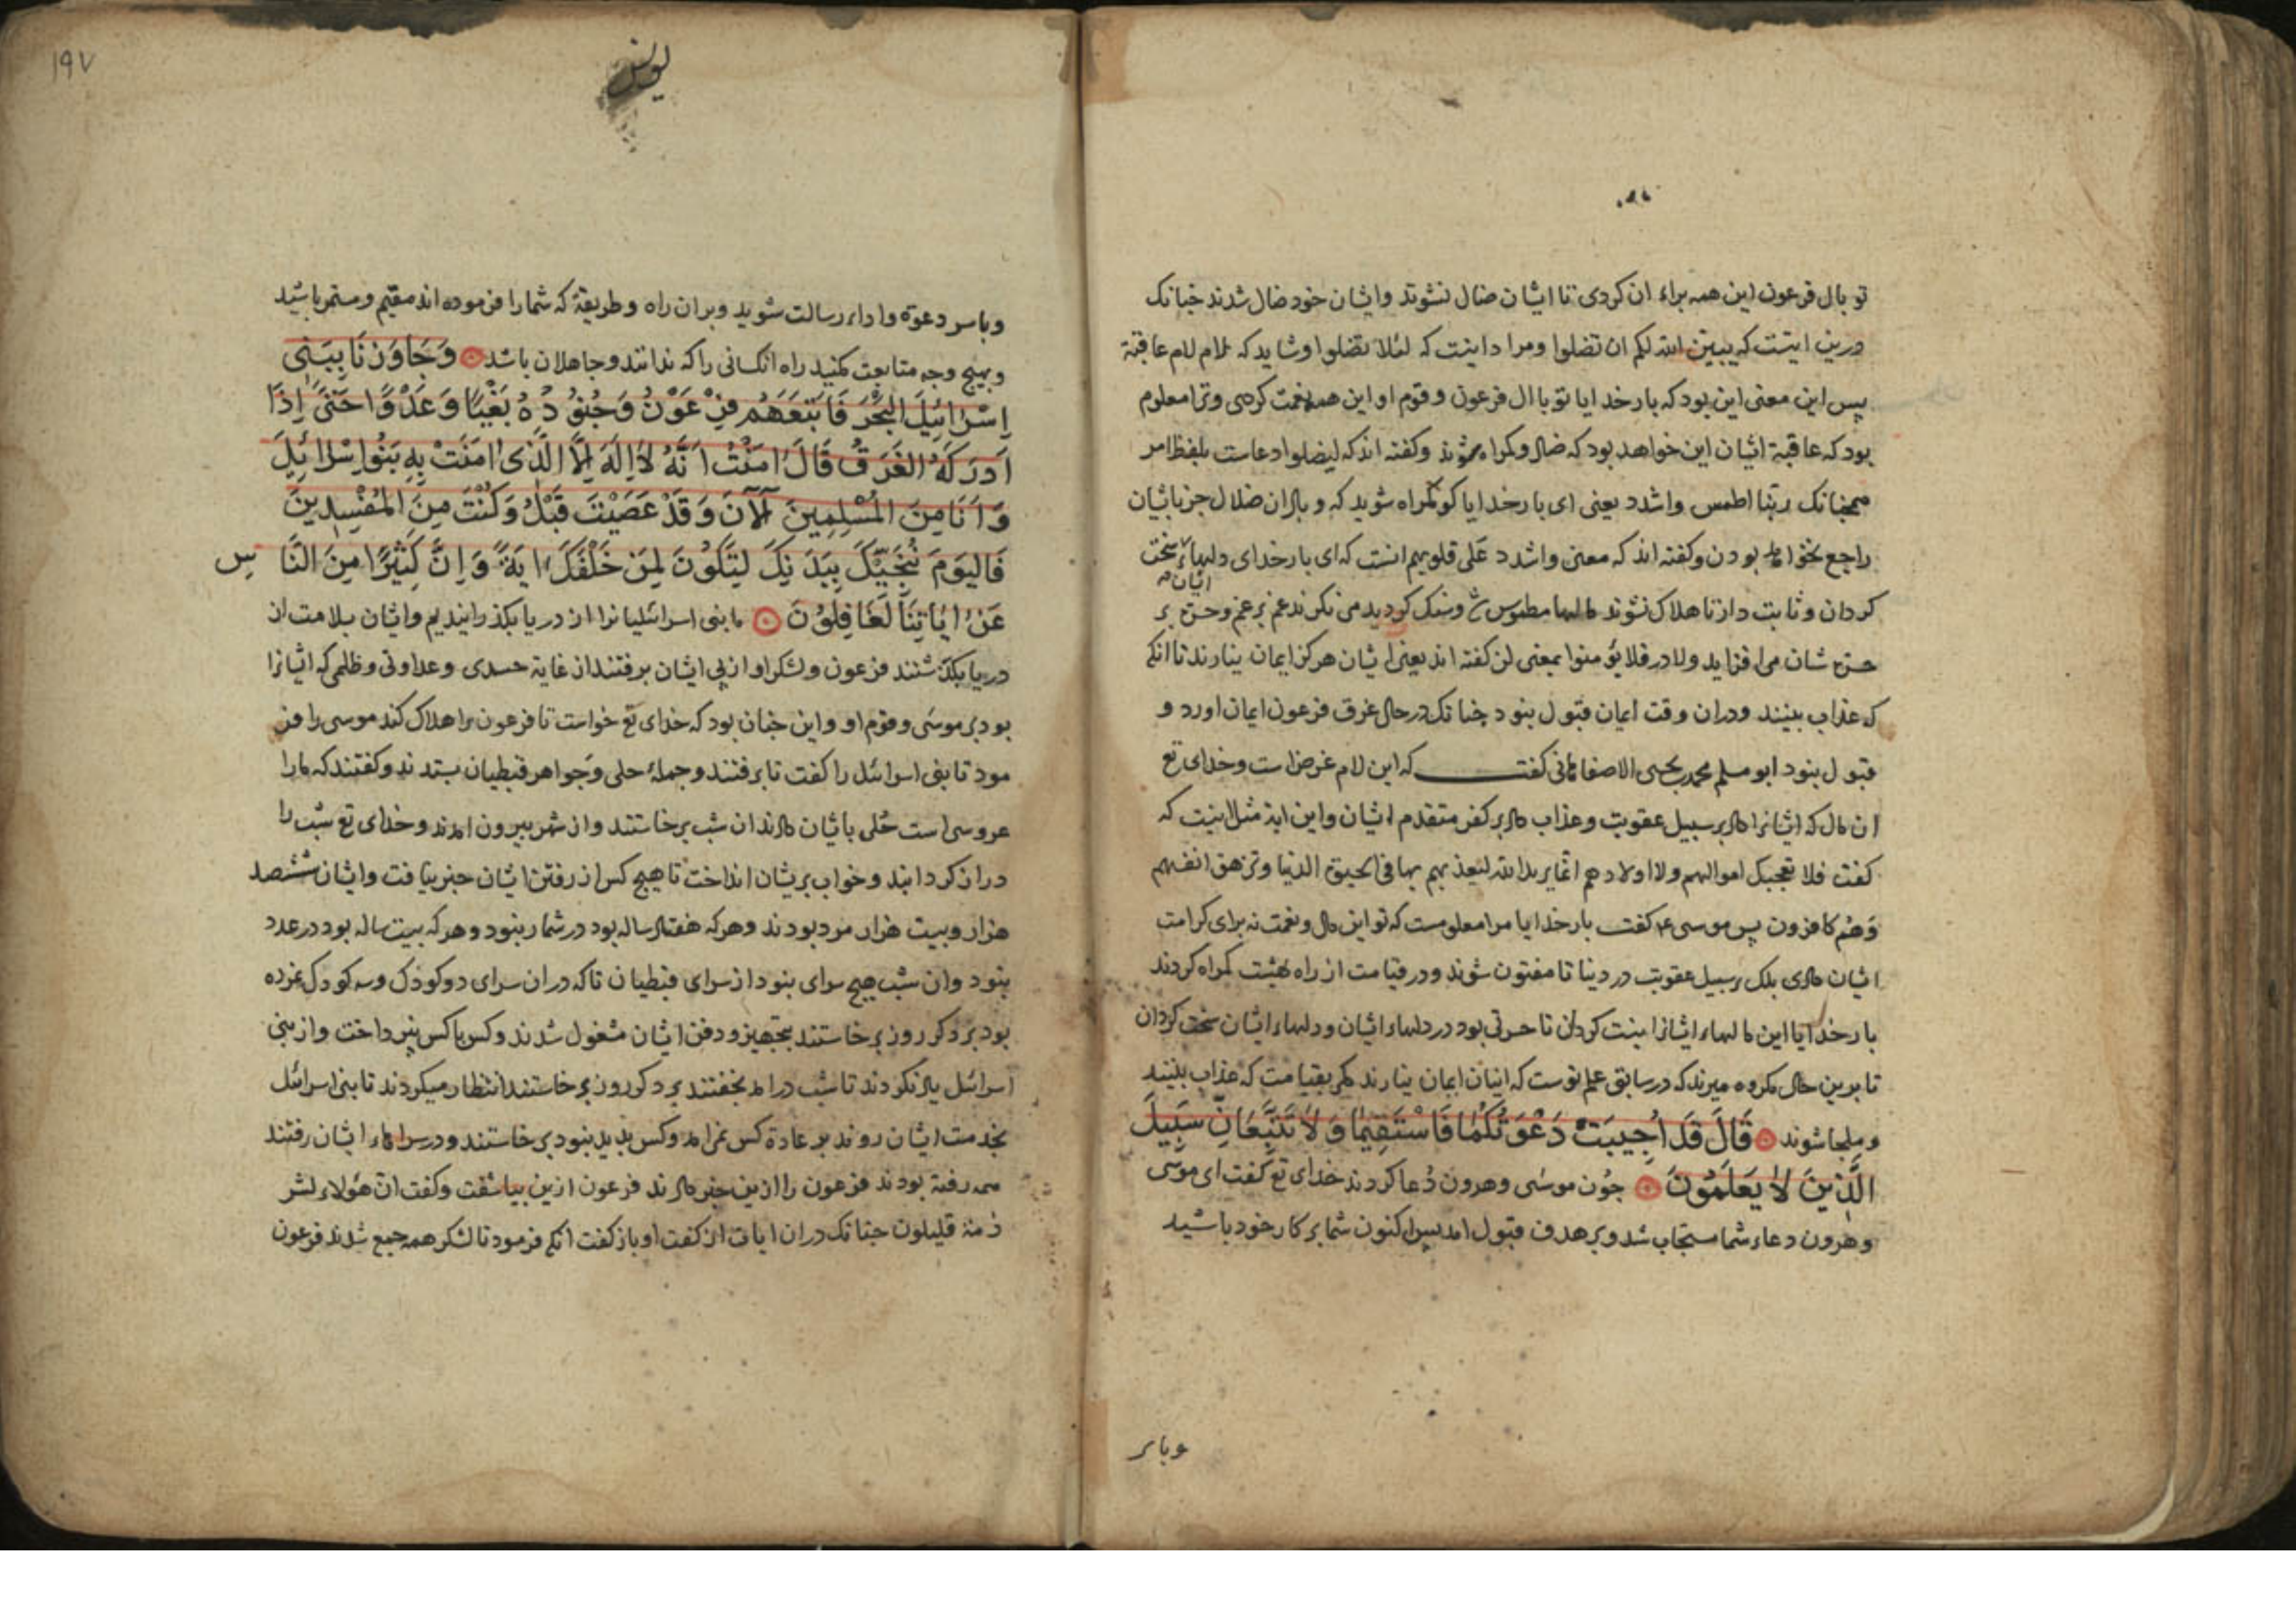 تو بال فرعون این همه براء ان کردی تا ایشان ضال نشوند وایشان خود ضال شدند جنانک
درین ایتست که یبین الله لکم ان تضلوا ومراد اینست که لئلا تضلوا وشاید که لام لام عاقبة
پس این معنی این بود که بار خدایا تو باال فرعون وقوم او این همه نعمت کردی وترا معلوم
بود که عاقبة ایشان این خواهد بود که ضال وکمراه شوند وکفته اند که لیضلوا دعاست بلفظ امر
همجنانک ربنا اطمس واشدد یعنی ای بار خدایا کو کمراه شوید که وبال ان ضلال جز بایشان
راجع نخواهد بودن وکفته اند که معنی واشدد علی قلوبهم انست که ای بار خدای دلهاء ایشان سخت
کردان وثابت دار تا هلاک نشوند مالها مطموس وسنک کردید می نکرند غم بر غم وحزن بر
حزن شان می افزاید ولا در فلا یؤمنوا بمعنی لن کفته اند یعنی ایشان هرکز ایمان نیارند تا انکه
که عذاب بینند ودران وقت ایمان قبول نبود جنانک در حال غرق فرعون ایمان اورد و
قبول نبود ابو مسلم محمد بن بحیی الاصفاهانی کفت که این لام غرض است وخدای تع
ان مال که ایشانرا داد بر سبیل عقوبت وعذاب داد بر کفر متقدم ایشان واین ایة مثل اینست که
کفت فلا تعجبک اموالهم ولا اولادهم انما یرید الله لیعذبهم بها فی الحیوة الدنیا وتزهق انفسهم
وهم کافرون پس موسی ع کفت بار خدایا مرا معلومست که تو این مال ونعمت نه برای کرامت
ایشان دادی بلک بر سبیل عقوبت در دنیا تا مفتون شوند ودر قیامت از راه بهشت کمراه کردند
بار خدایا این مالهاء ایشانرا نیست کردان تا حسرتی بود در دلهاء ایشان ودلهاء ایشان سخت کردان
تا برین حال مکروه میرند که در سابق علم توست که اینان ایمان نیارند مکر بقیامت که عذاب بینند
وملجا شوند قَالَ قَدْ اُجِيبَتْ دَعْوَتُكُمَا فَاسْتَقِيمَا وَلَا تَتَّبِعَانِّ سَبِيلَ
الَّذِينَ لَا يَعْلَمُونَ جون موسی وهرون دعا کردند خدای تع کفت ای موسی
وهرون دعاء شما مستجاب شد وبر هدف قبول امد پس اکنون شما بر کار خود باشید
وبا سر
۱۹۷
یونس
وبا سر دعوة واداء رسالت شوید وبران راه وطریقة که شما را فرموده اند مقیم ومستمر باشید
وبهیج وجه متابعت مکنید راه انکسانی را که ندانند وجاهلان باشد وَجَاوَزْنَا بِبَنِي
اِسْرَائِيلَ الْبَحْرَ فَاَتْبَعَهُمْ فِرْعَوْنُ وَجُنُودُهُ بَغْيًا وَعَدْوًا حَتَّى اِذَا
اَدْرَكَهُ الْغَرَقُ قَالَ اٰمَنْتُ اَنَّهُ لَا اِلَهَ اِلَّا الَّذِي اٰمَنَتْ بِهِ بَنُوا اِسْرَائِيلَ
وَاَنَا مِنَ الْمُسْلِمِينَ آلْآنَ وَقَدْ عَصَيْتَ قَبْلُ وَكُنْتَ مِنَ الْمُفْسِدِينَ
فَالْيَوْمَ نُنَجِّيكَ بِبَدَنِكَ لِتَكُونَ لِمَنْ خَلْفَكَ اٰيَةً وَاِنَّ كَثِيرًا مِنَ النَّاسِ
عَنْ اٰيَاتِنَا لَغَافِلُونَ ما بنی اسرائلیانرا از دریا بکذرانیدیم وایشان بسلامت از
دریا بکذشتند فرعون ولشکر او از پی ایشان برفتند از غایة حسدی وعداوتی وظلمی که ایشانرا
بود بر موسی وقوم او واین جنان بود که خدای تع خواست تا فرعون را هلاک کند موسی را فر
مود تا بنی اسرائل را کفت تا برفتند وجملۀ حلی وجواهر قبطیان بستدند وکفتند که ما را
عروسی است حلی بایشان دادند ان شب برخاستند واز شهر بیرون امدند وخدای تع شب را
دراز کردانید وخواب بریشان انداخت تا هیج کس از رفتن ایشان خبر نیافت وایشان ششصد
هزار وبیست هزار مرد بودند وهرکه هفتاد ساله بود در شمار نبود وهرکه بیست ساله بود در عدد
نبود وان شب هیج سرای نبود از سرای قبطیان تاکه دران سرای دو کودک وسه کودک مرده
بود بر دکر روز برخاستند بتجهیز ودفن ایشان مشغول شدند وکس باکس نپرداخت واز بنی
اسرائل یاد نکردند تا شب درامد بخفتند بر دکر روز برخاستند انتظار میکردند تا بنی اسرائل
بخدمت ایشان روند بر عادة کس نمی امد وکس بدید نبود برخاستند ودر سراهاء ایشان رفتند
همه رفته بودند فرعون را ازین خبر دادند فرعون ازین بیاشفت وکفت ان هؤلاء لشر
ذمة قلیلون جنانک دران ایات از کفت او باز کفت انکه فرمود تا لشکر همه جمع شدند فرعون